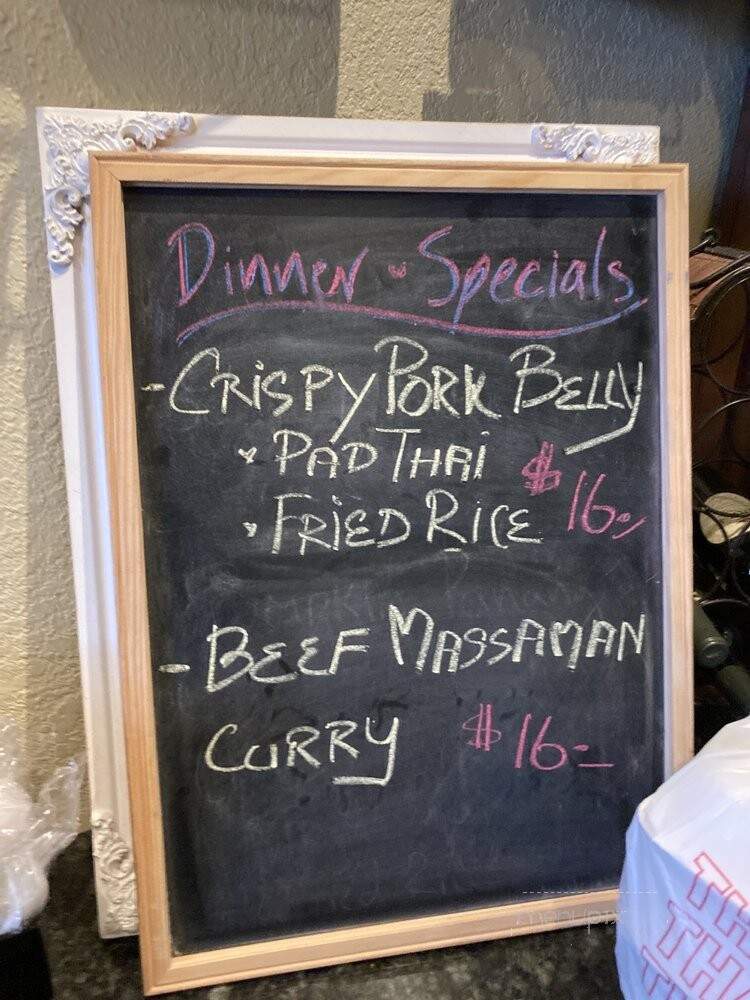 Dinner - Specials
- CRISPY PORK BELLY
• PAD THAI
$16.-
• FRIED RICE
- BEEF MASSAMAN
CURRY $16.-
menupix